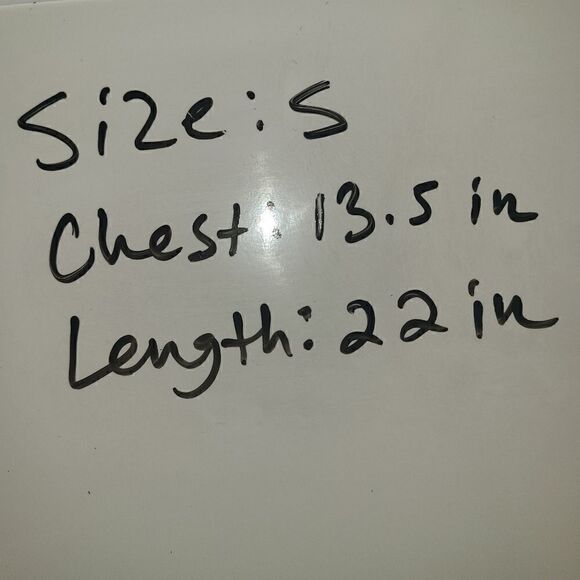 Size: S
Chest: 13.5 in
Length: 22 in